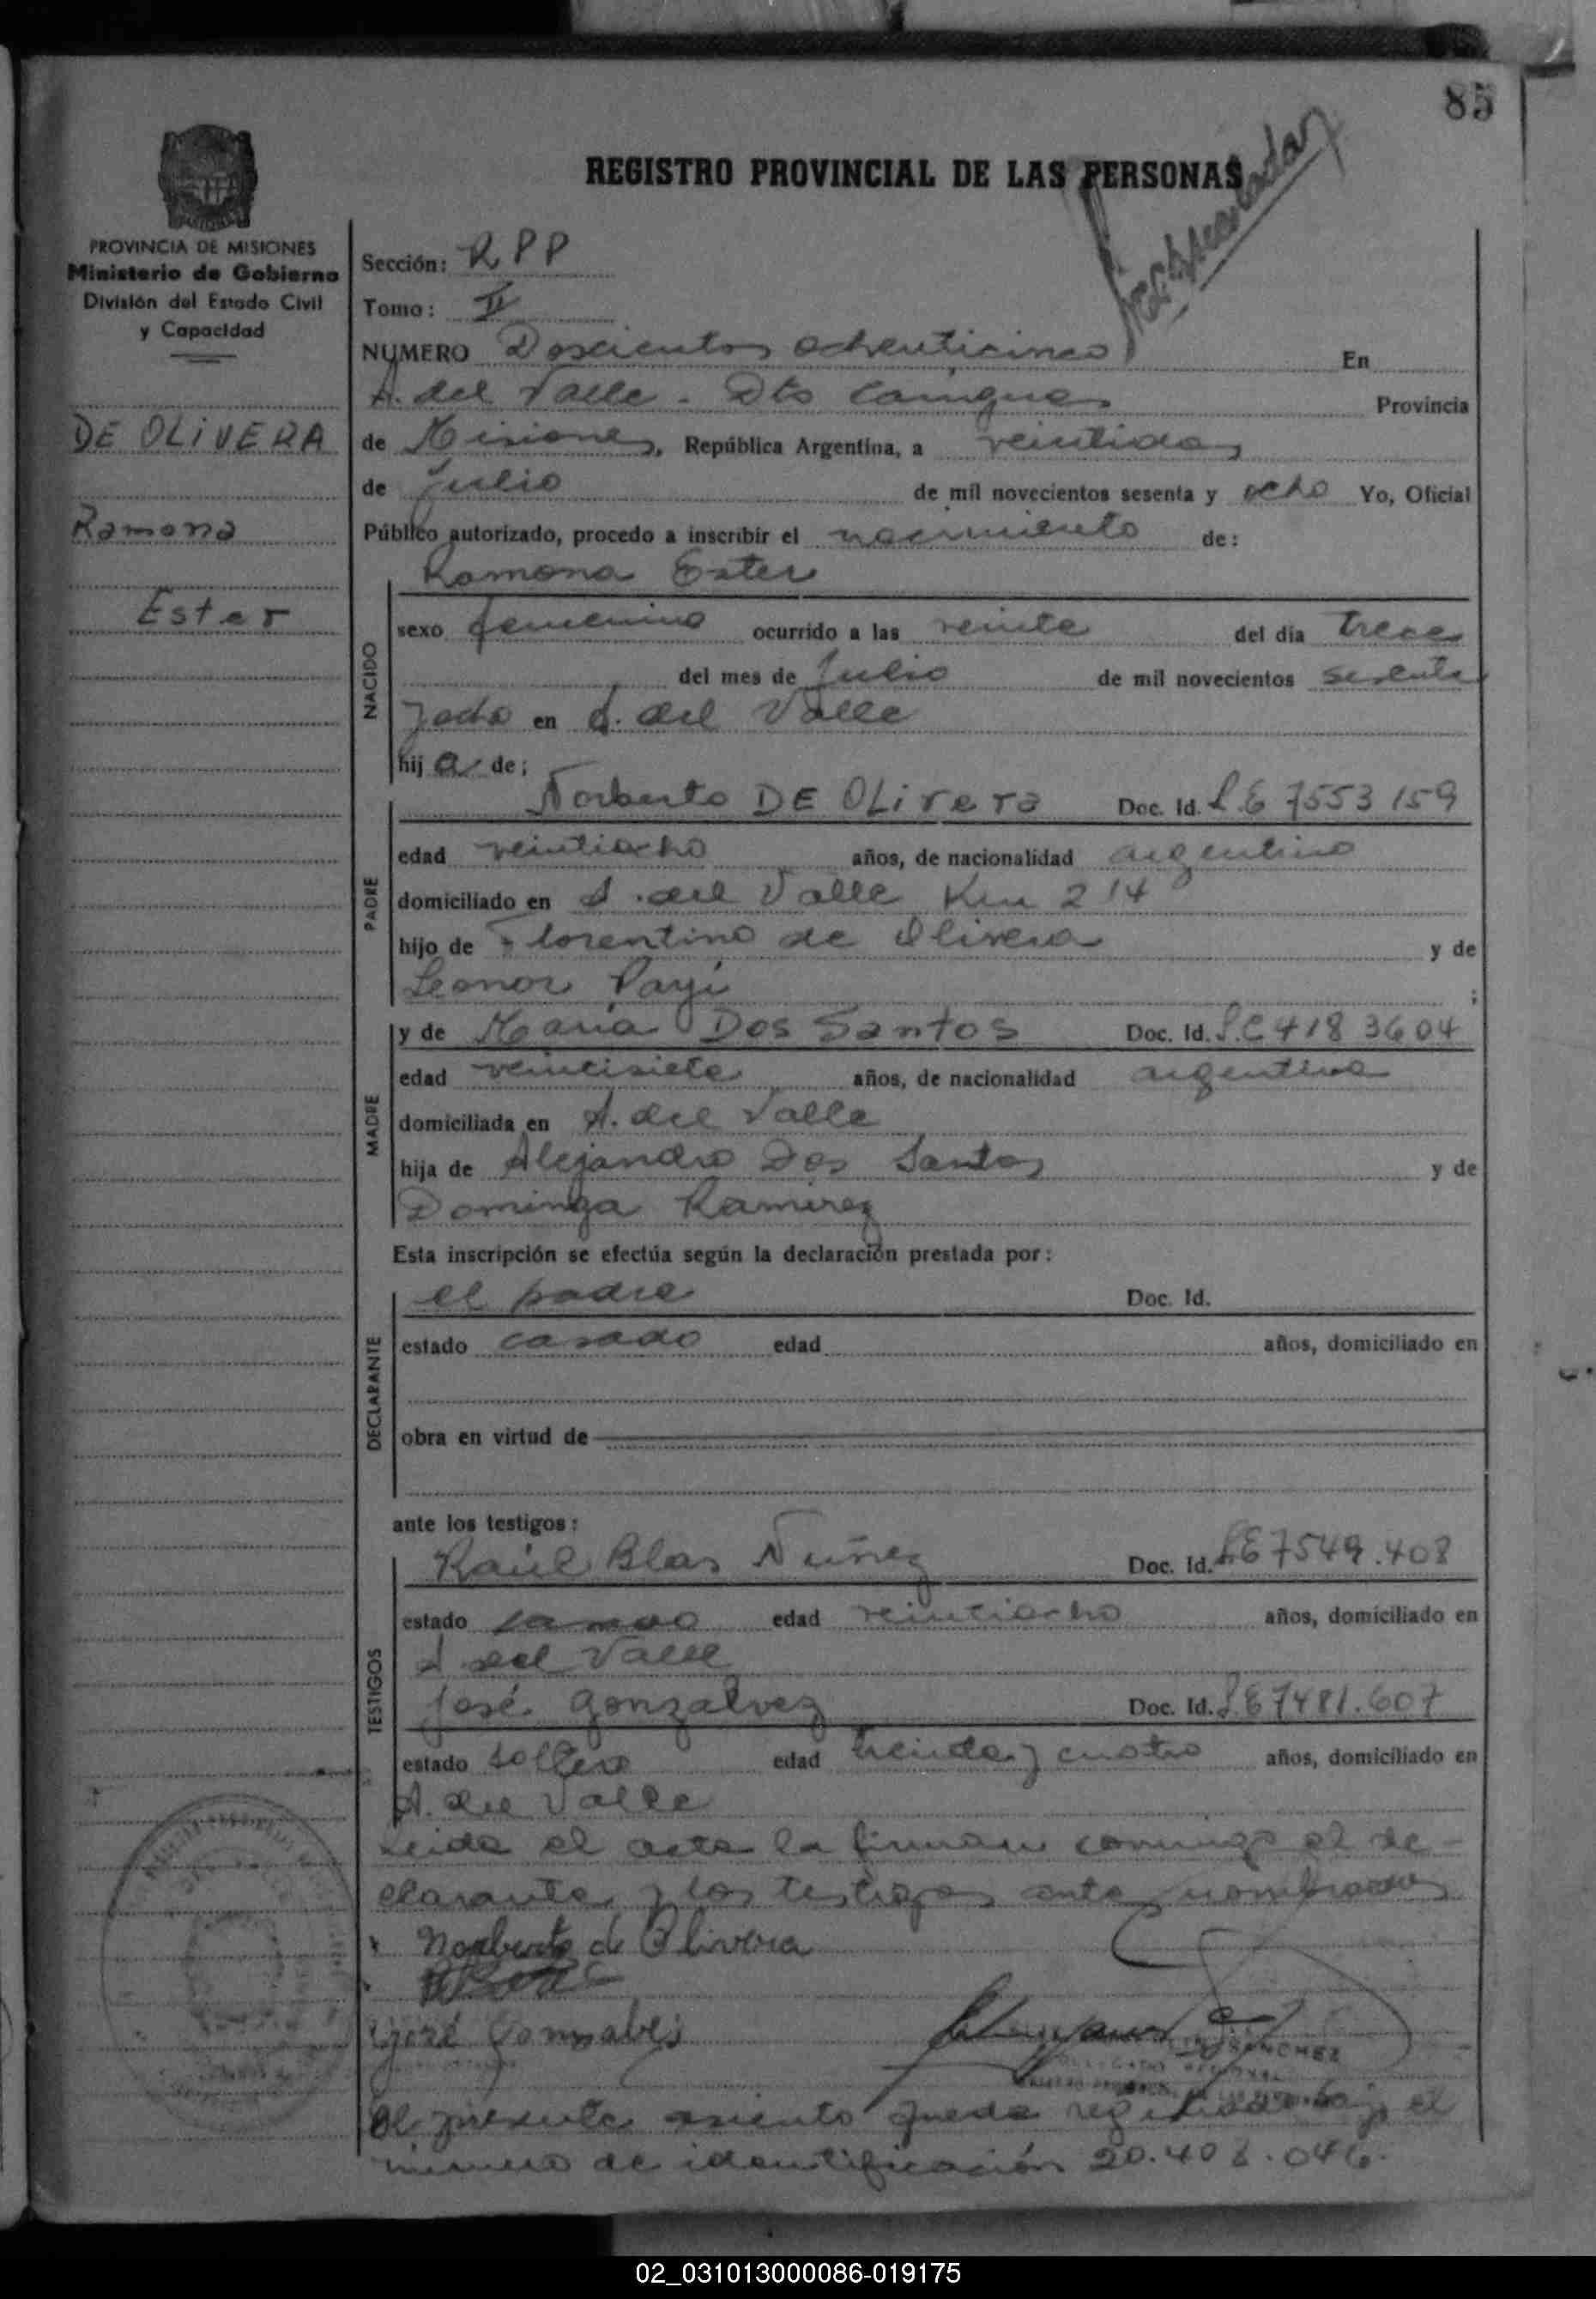 85
REGISTRO PROVINCIAL DE LAS PERSONAS
PROVINCIA DE MISIONES
Ministerio de Gobierno
División del Estado Civil
y Capacidad
DE OLIVERA
Ramona
Ester
Sección: RPP
Tomo: II
NUMERO Doscientos ochenticinco En
A. del Valle - Dto Cainguas Provincia
de Misiones, República Argentina, a veintidos
de Julio de mil novecientos sesenta y ocho Yo, Oficial
Público autorizado, procedo a inscribir el nacimiento de:
Ramona Ester
NACIDO
sexo femenino ocurrido a las veinte del día trece
del mes de Julio de mil novecientos sesenta
y ocho en A. del Valle
hija de;
PADRE
Norberto DE OLivera Doc. Id. L.E 7553159
edad veintiocho años, de nacionalidad argentino
domiciliado en A. del Valle Km 214
hijo de Florentino de Olivera y de
Leonor Payi ;
MADRE
y de María Dos Santos Doc. Id. L.C 4183604
edad veintisiete años, de nacionalidad argentina
domiciliada en A. del Valle
hija de Alejandro Dos Santos y de
Dominga Ramirez
Esta inscripción se efectúa según la declaración prestada por:
DECLARANTE
el padre Doc. Id.
estado casado edad años, domiciliado en
obra en virtud de
ante los testigos:
TESTIGOS
Raúl Blas Nuñez Doc. Id. LE 7549.408
estado edad veintiocho años, domiciliado en
A. del Valle
José Gonzalvez Doc. Id. L.E 7481.607
estado soltero edad treinta y cuatro años, domiciliado en
A. del Valle
Leida el acta la firman conmigo el de-
clarante y los testigos ante nombrados
Norberto de Olivera
José Gonzalves
SANCHEZ
El presente asiento queda registrado bajo el
número de identificación 20.408.046.
02_031013000086-019175